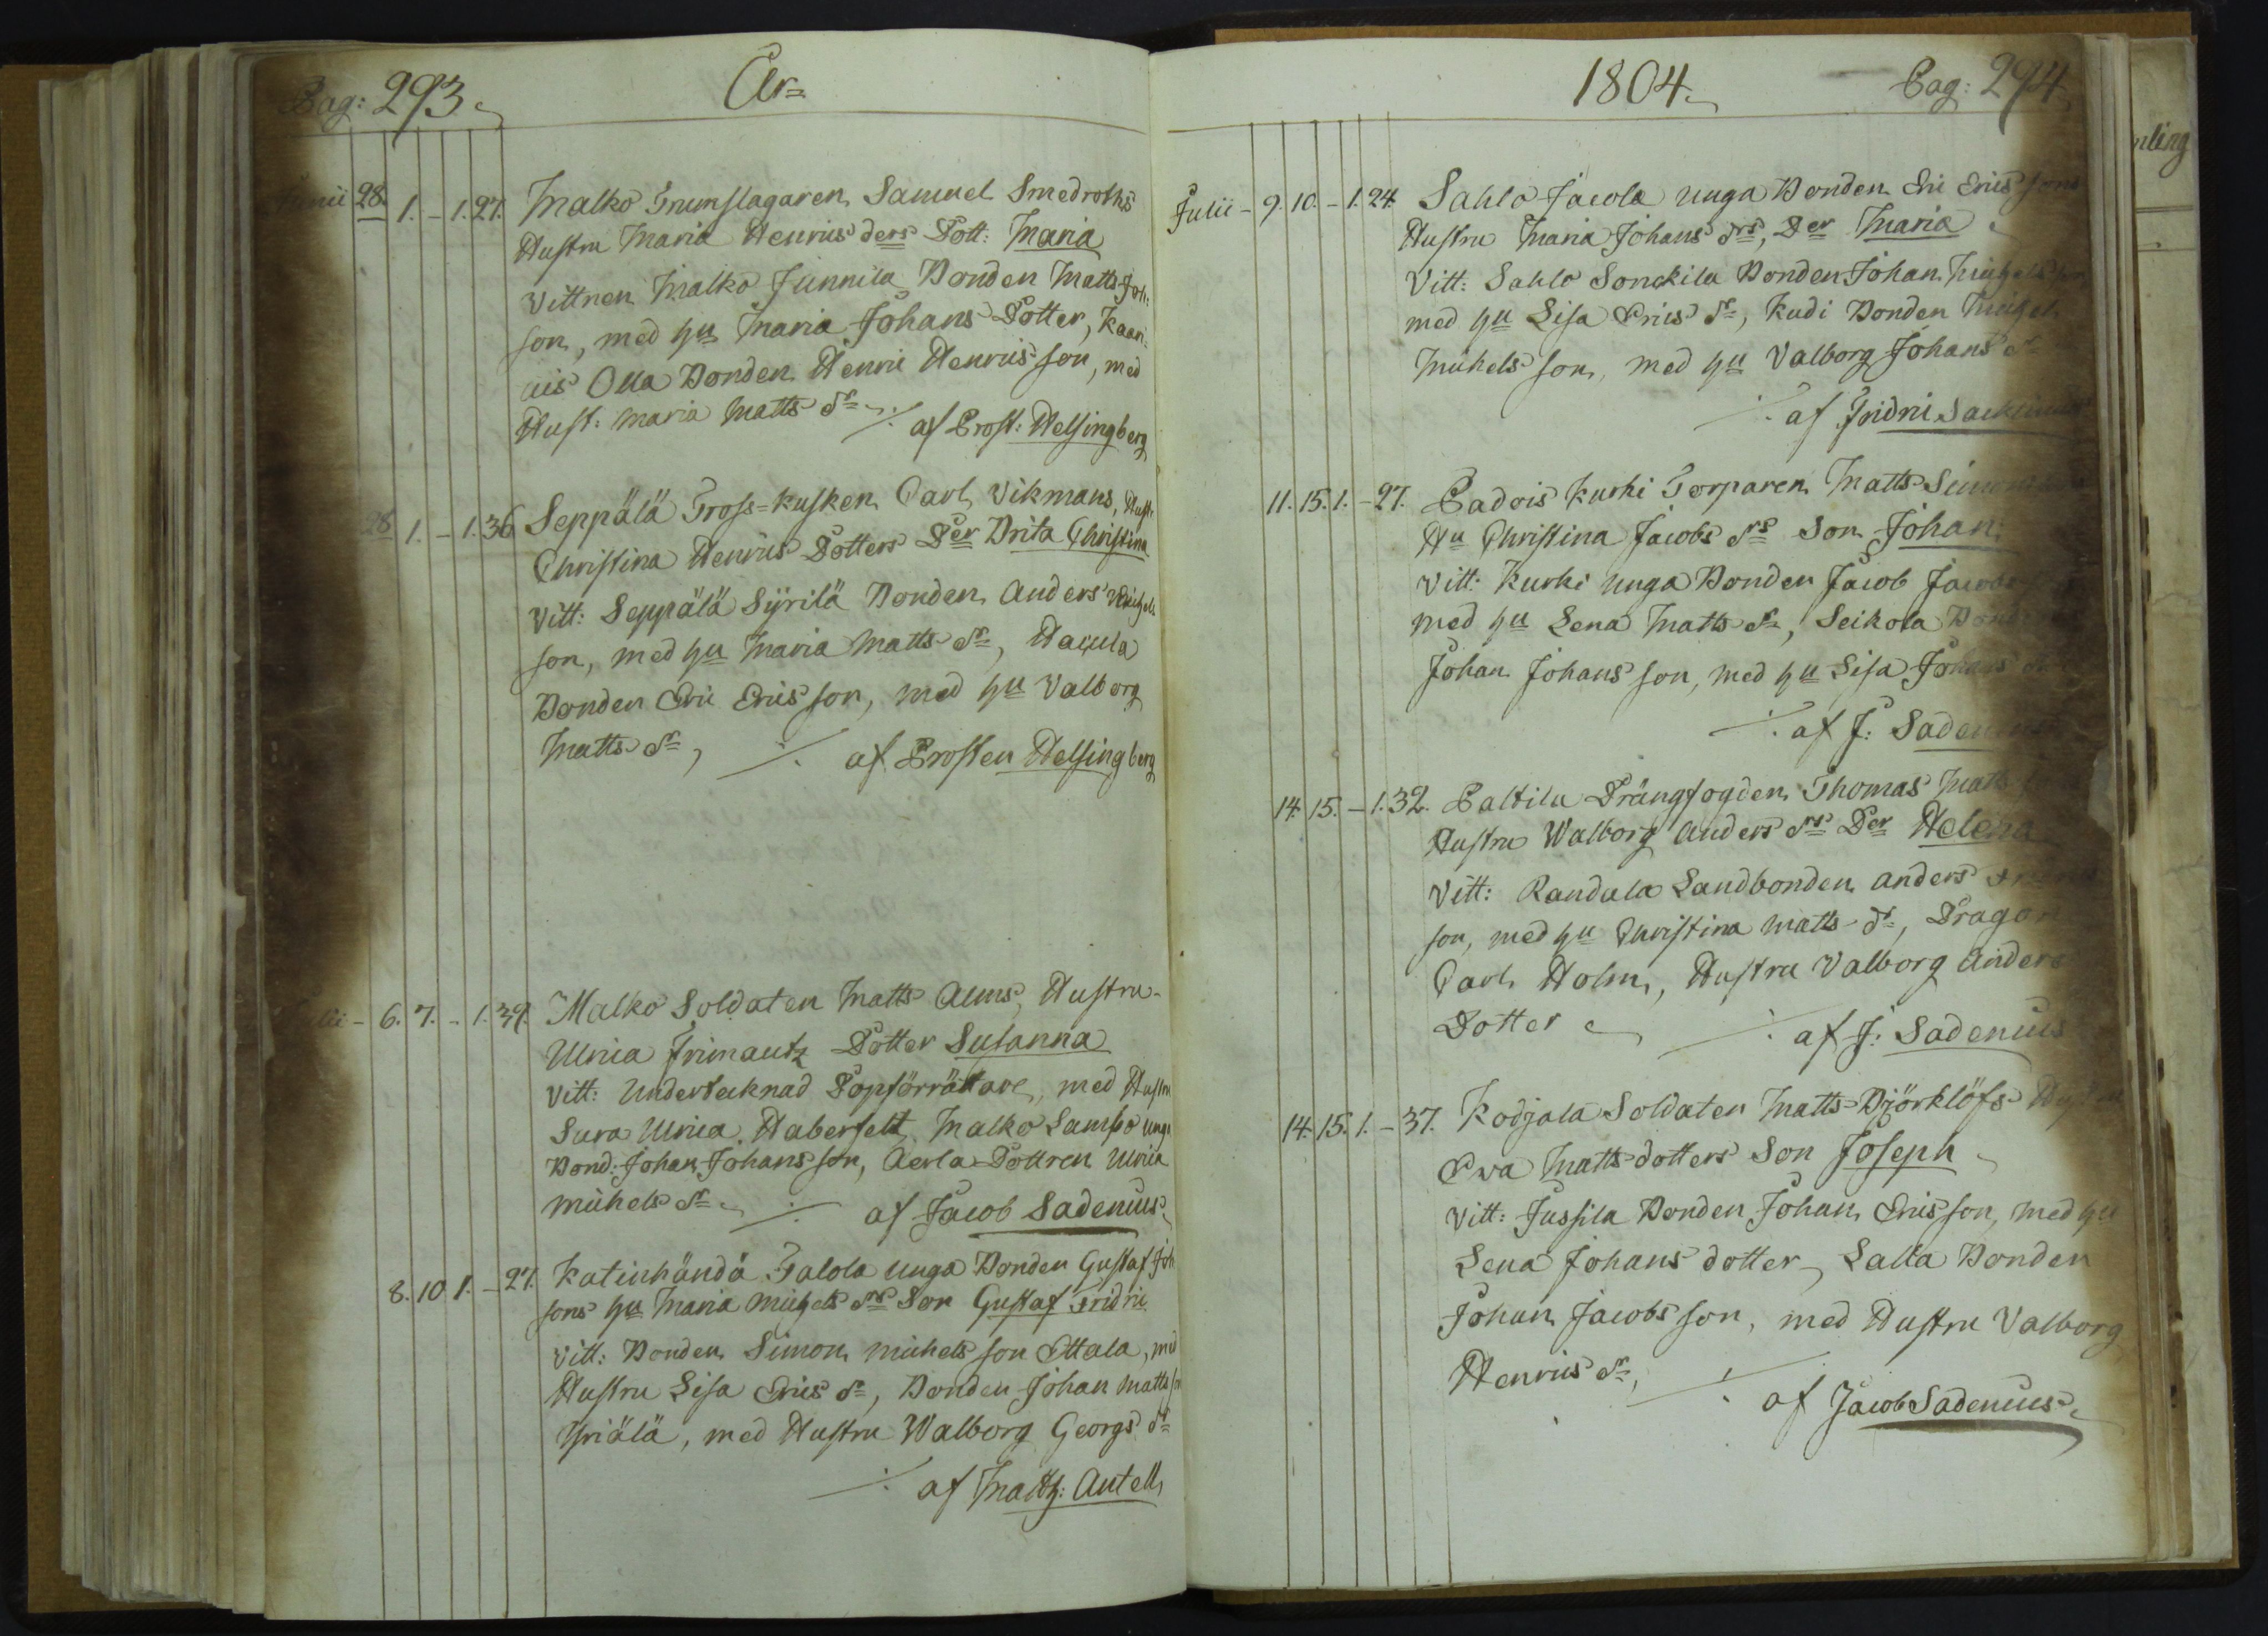 Pag: 293. År=
Junii 28. 1. - 1. 27. Malko Trumslagaren Samuel Smedroths
Hustru Maria Henrics ders Dott: Maria
Vittnen Malko Junnila Bonden Matts Joh:
son, med hu Maria Johans Dotter, Kaan=
Olla Bonden Henric Henrics son, med
Hust: Maria Matts dr ./. af Prost: Helsingberg
28. 1. - 1. 36 Seppälä Tross=kusken Carl Vikmans, Hust:
Christina Henrics Dotters Der Brita Christina
Vitt: Seppälä Syrilä Bonden Anders Michels
son, med hu Maria Matts dr, Hacula
Bonden Eric Erics son, med hu Valborg
Matts dr, ./. af Prosten Helsingberg
6. 7. - 1. 39. Malko Soldaten Matts Alms, Hustru
Ulrica Frimautz Dotter Susanna
Vitt: Undertecknad Dopförrättare, med Hustru
Sara Ulrica Haberfelt, Malko Sampo unge
Bond: Johan Johans son, Aerla Dottren Ulrica
Michels dr ./. af Jacob Sadenius
8. 10. 1. - 27. Katinhändä Talola unga Bonden Gustaf Joh
sons hu Maria Michels drs Son Gustaf Fridric
Vitt: Bonden Simon Michels son Ettala, med
Hustru Lisa Erics dr, Bonden Johan Matts son
Yriälä, med Hustru Walborg Georgs dr
./. af Matth: Antell
1804. Pag: 294
Julii - 9. 10. - 1. 24. Sahlo Jacola unga Bonden Eric Erics sons
Hustru Maria Johans drs, Der Maria
Vitt: Sahlo Sonckila Bonden Johan Michels son
med hu Lisa Erics dr, Kudi Bonden Michel
Michels son, med hu Valborg Johans dr
./. af Fridric Sacklinius
11. 15. 1. - 27. Padois Kurki Torparen Matts
Hu Christina Jacobs drs Son Johan
Vitt: Kurki unga Bonden Jacob Jacobs
med hu Lena Matts dr, Seikola Bonden
Johan Johans son, med hu Lisa Johans dr
./. af J: Sadenius
14. 15. - 1. 32. Paltila Drängfogden Thomas Matts
Hustru Walborg Anders drs Der Helena
Vitt: Randala Landbonden Anders
son, med hu Christina Matts dr, Dragon
Carl Holm, Hustru Valborg Anders
Dotter ./. af J: Sadenius
14. 15. 1. - 37. Kodjala Soldaten Matts Björklöfs Hustru
Ewa Matts dotters Son Joseph
Vitt: Jussila Bonden Johan Erics son, med hu
Lena Johans dotter, Lalla Bonden
Johan Jacobs son, med Hustru Valborg
Henrics dr, ./. af Jacob Sadenius
nling